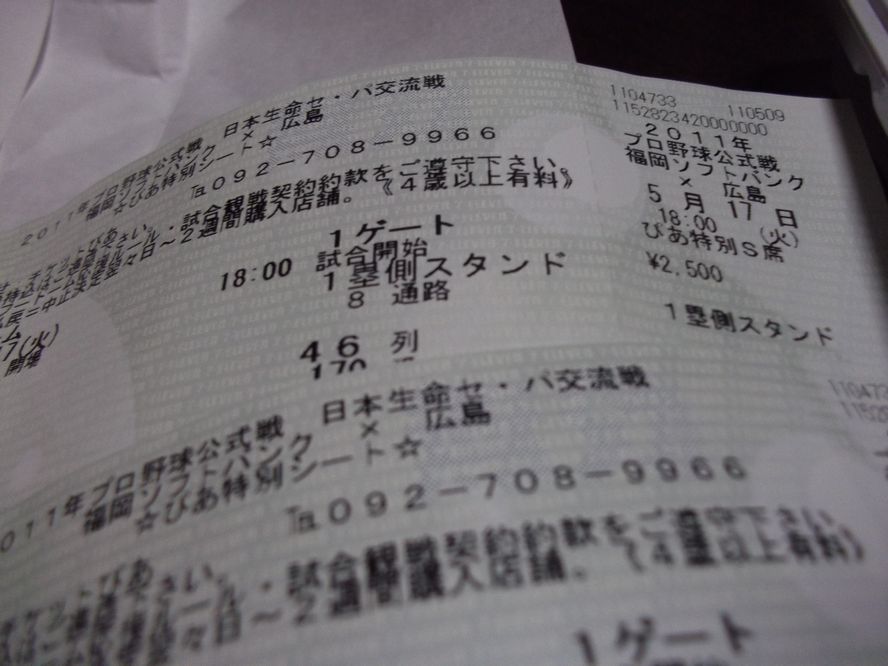 1104733 110509
1152823420000000
2011年
プロ野球公式戦
福岡ソフトバンク
× 広島
5月17日
(火)
18:00
ぴあ特別S席
¥2,500
1塁側スタンド
2011年プロ野球公式戦 日本生命セ・パ交流戦
福岡ソフトバンク × 広島
☆ぴあ特別シート☆
℡092-708-9966
ルール・試合観戦契約約款をご遵守下さい
々日~2週間購入店舗。《4歳以上有料》
1ゲート
18:00 試合開始
1塁側スタンド
8 通路
46 列
7(火)
開場
2011年プロ野球公式戦 日本生命セ・パ交流戦
福岡ソフトバンク × 広島
☆ぴあ特別シート☆
℡092-708-9966
チケットぴあ
ルール・試合観戦契約約款をご遵守下さい
々日~2週間購入店舗。《4歳以上有料》
1ゲート